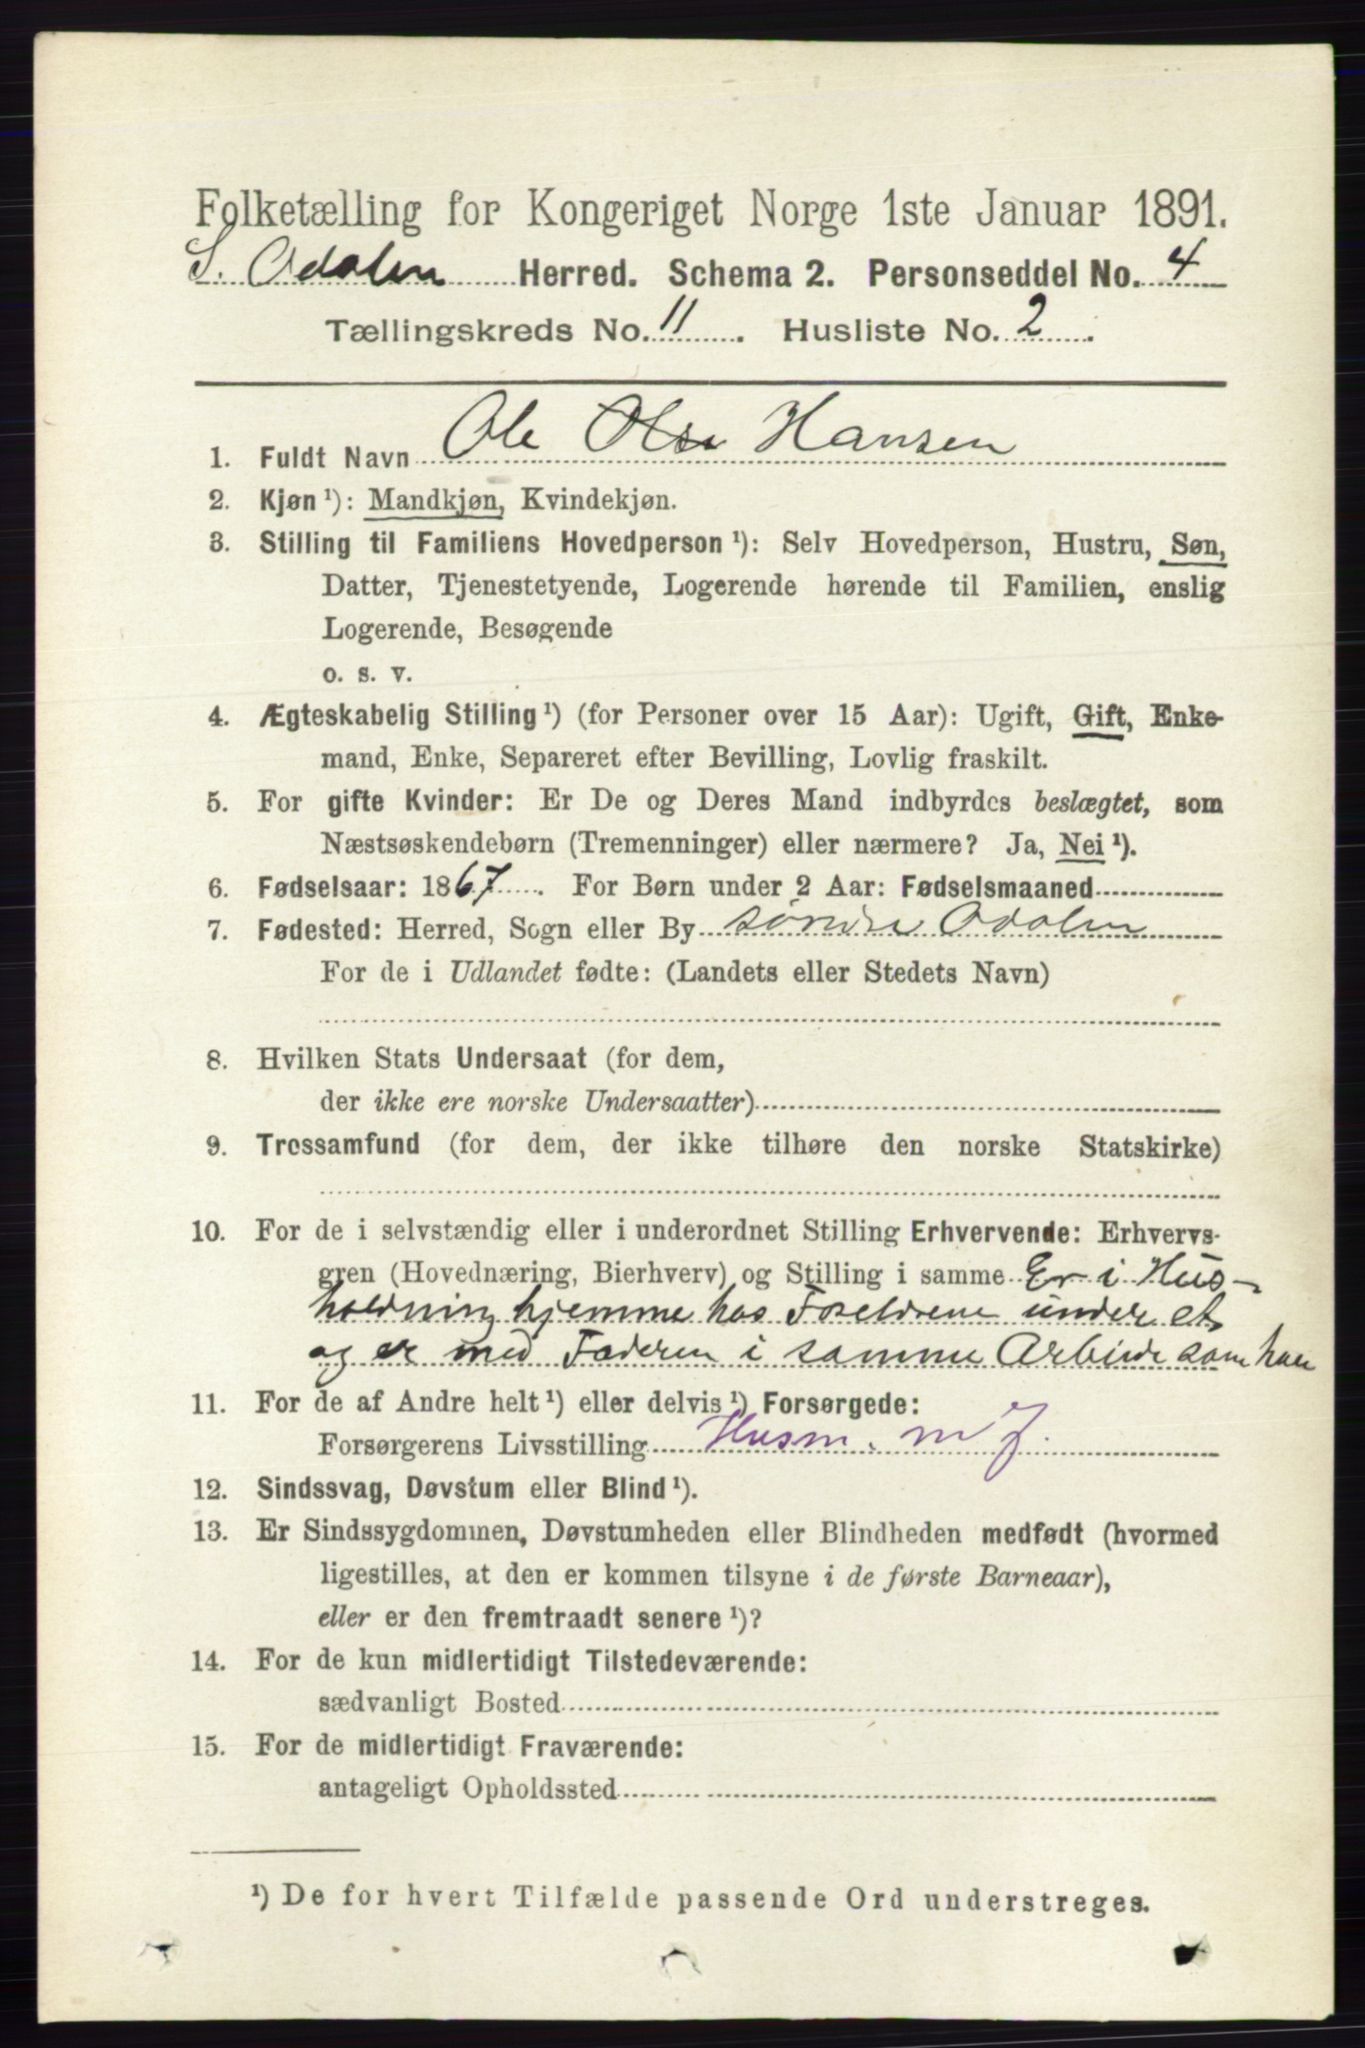 Folketælling for Kongeriget Norge 1ste Januar 1891.
S. Odalen Herred. Schema 2. Personseddel No. 4
Tællingskreds No. 11. Husliste No. 2.
1. Fuldt Navn Ole Olse Hansen
2. Kjøn ¹): Mandkjøn, Kvindekjøn.
3. Stilling til Familiens Hovedperson ¹): Selv Hovedperson, Hustru, Søn,
Datter, Tjenestetyende, Logerende hørende til Familien, enslig
Logerende, Besøgende
o. s. v.
4. Ægteskabelig Stilling ¹) (for Personer over 15 Aar): Ugift, Gift, Enke-
mand, Enke, Separeret efter Bevilling, Lovlig fraskilt.
5. For gifte Kvinder: Er De og Deres Mand indbyrdes beslægtet, som
Næstsøskendebørn (Tremenninger) eller nærmere? Ja, Nei ¹).
6. Fødselsaar: 1867. For Børn under 2 Aar: Fødselsmaaned
7. Fødested: Herred, Sogn eller By søndre Odalen
For de i Udlandet fødte: (Landets eller Stedets Navn)
8. Hvilken Stats Undersaat (for dem,
der ikke ere norske Undersaatter)
9. Trossamfund (for dem, der ikke tilhøre den norske Statskirke)
10. For de i selvstændig eller i underordnet Stilling Erhvervende: Erhvervs-
gren (Hovednæring, Bierhverv) og Stilling i samme Er i Hus-
holdning hjemme hos Foreldrene under et
og er med Faderen i samme Arbeide som han
11. For de af Andre helt ¹) eller delvis ¹) Forsørgede:
Forsørgerens Livsstilling Husm. m J.
12. Sindssvag, Døvstum eller Blind ¹).
13. Er Sindssygdommen, Døvstumheden eller Blindheden medfødt (hvormed
ligestilles, at den er kommen tilsyne i de første Barneaar),
eller er den fremtraadt senere ¹)?
14. For de kun midlertidigt Tilstedeværende:
sædvanligt Bosted
15. For de midlertidigt Fraværende:
antageligt Opholdssted
¹) De for hvert Tilfælde passende Ord understreges.